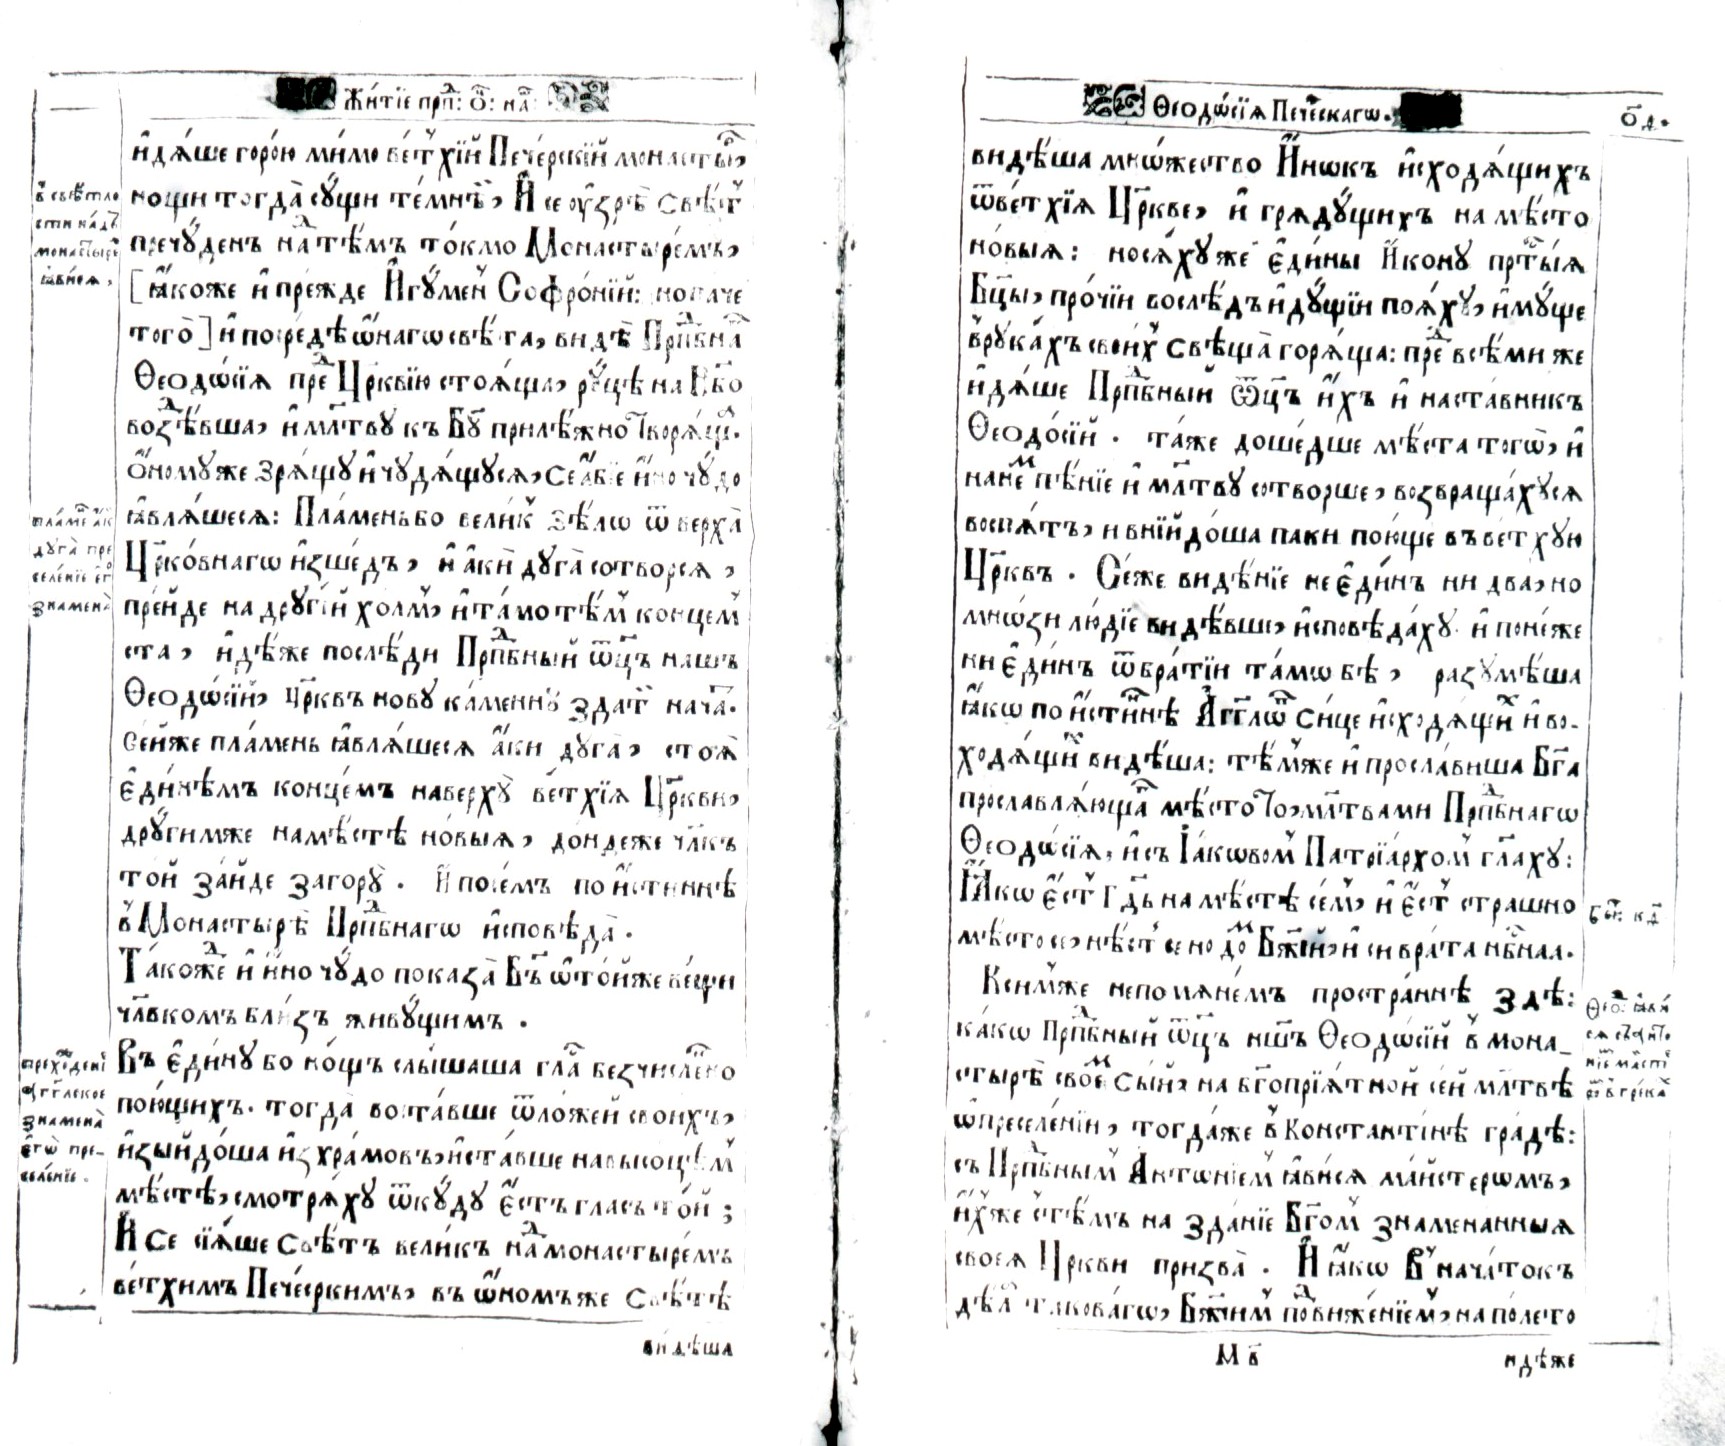 Жи́тїе прпⷣ: Ѻ҃: на́:
и҆дѧ́ше горо́ю ми́мо ве́тхїй Пече́рскїй монасты́,
нощи тогда̀ сꙋ́щи те́мнѣ, И҆ се ѹ҆́зрѣ свѣ́т
пречꙋ́денъ наⷣ тѣ́мъ то́кмо Монастыре́мъ,
[ꙗ҆́коже и҆ пре́жде И҆гꙋ́мен Софро́нїй: но паче
того̀] и҆ посредѣ ѻ҆́нагѡ свѣ́та, видѣ̀ Прпⷣбна
Ѳеодѡ́сїѧ преⷣ Цр҃квїю стоѧ́ща, рꙋ́цѣ на Нб҃о
воздѣ́вша, и҆ мл҃твꙋ къ Бг҃ꙋ прилѣ́жно творѧ́щ.
ѻ҆́номꙋже зрѧ́щꙋ и҆ чꙋдѧ́щꙋсѧ, Се а҆́бїе и҆́но чꙋ́до
ꙗ҆влѧ́шесѧ: Пла́мень бо вели́к ѕѣ́лѡ ѿ верха̀
Цр҃ко́внагѡ и҆зше́дъ, и҆ а҆ки̑ дꙋга̀ сотворсѧ,
пре́йде на дрꙋгі́й хо́лм, и҆ та́мо тѣ́м концем
ста, и҆дѣ́же послѣди Прпⷣбный ѿц҃ъ нашъ
Ѳеодѡ́сїй, цр҃квъ новꙋ ка́меннꙋ здат нача́.
Се́йже пла́мень ꙗ҆влѧ́шесѧ а҆́ки дꙋга̀, стоѧ̀
є҆ди́нѣмъ конце́мъ наверхꙋ̀ ве́тхїѧ Цр҃кви,
дрꙋги́мже на мѣ́стѣ но́выѧ, до́ндеже чл҃къ
то́й за́йде за горꙋ̀. И҆ по се́мъ по и҆́стиннѣ
в Монастырѣ̀ Прпⷣбнагѡ и҆сповѣ́да̀.
Та́коже и҆ и҆́но чꙋ́до показа̀ Бг҃ъ ѡ҆ то́йже ве́щи
чл҃вкомъ бли́зъ живꙋ́щимъ.
Въ є҆ди́нꙋ бо но́щъ слы́шаша гла́ безчисле́но
пою́щихъ. тогда̀ воста́вше ѿ ло́жей своихъ,
и҆зыйдо́ша и҆з хра́мовъ, и҆ ста́вше на высоцѣ́м
мѣ́стѣ, смотрѧ́хꙋ ѿкꙋ́дꙋ є҆́стъ гласъ то́й;
И҆ се сїѧ́ше свѣ́тъ вели́къ наⷣ монастыре́мъ
ве́тхимъ Пече́рскимъ, въ ѻ҆́номъже свѣ́тѣ
ви́дѣша
в свѣ́тло
сти на́дъ
монастыре
ꙗ҆ви́сѧ,
пла́ме а҆́к
дꙋга̀ пре
селе́нїе є҆г
знамена̀
прехожде́нї
а҆́гг҃лское
знамена̀
є҆гѡ̀ пре-
селе́нїе.
Ѳеодѡ́сїѧ Пече́рскагѡ.
о҃д.
видѣ́ша мнѡ́жество И҆́нокъ и҆сходѧ́щихъ
ѿ ве́тхїѧ Цр҃кве, и҆ грѧдꙋ́щихъ на мѣ́сто
но́выѧ: носѧ́хꙋ же є҆ди́ны И҆кону прⷭты́ѧ
Бц҃ы, про́чїи вослѣ́дъ и҆дꙋ́щїи поѧ́хꙋ, и҆мꙋ́ще
в рꙋка́хъ свои́х свѣща̀ горѧ́ща: преⷣ всѣ́ми же
и҆дѧ́ше Прпⷣбный Ѿц҃ъ и҆́хъ и҆ наста́вникъ
Ѳеодо́сїй. та́же доше́дше мѣ́ста тогѡ̀, и҆
нанеⷨ пѣ́нїе и҆ мл҃твꙋ сотворше, возвраща́хꙋсѧ
воспѧ́тъ, и внїйдо́ша паки пою́ще въ ве́тхꙋю
Цр҃квъ. Се́же видѣ́нїе не є҆ди́нъ ни два, но
мно́зи лю́дїе видѣ́вше, и҆сповѣ́дахꙋ. и҆ поне́же
ни є҆ди́нъ ѿ бра́тїи та́мѡ бѣ, разꙋмѣ́ша
ꙗ҆́кѡ по и҆́стиннѣ А҆́гг҃лѡв си́це и҆сходѧ́щих и҆ во-
ходѧ́щих видѣ́ша: тѣ́мже и҆ просла́виша Бг҃а
прославлѧ́юща мѣ́сто то, мл҃твами Прпⷣбнагѡ
Ѳеодѡ́сїѧ, и҆ съ І҆а́кѡвом Патрїа́рхом гл҃ахꙋ:
Ꙗ҆́кѡ є҆́ст Гдⷭь на мѣ́стѣ се́м, и҆ є҆́ст страшно
мѣ́сто се, нѣ́ст се но доⷨ Бж҃їй, и҆ си врата нб҃наа.
К си́мже непомѧне́мъ простра́ннѣ здѣ:
ка́кѡ Прпⷣбный ѿц҃ъ нш҃ъ Ѳеодѡ́сїй в мона-
стырѣ̀ своеⷨ сы́й, на бг҃опрїѧ́тной се́й мл҃твѣ
ѡ҆ преселе́нїи, тогда́же в Константі́нѣ гра́дѣ:
съ Прпⷣбным Антѡ́нїем ꙗ҆ви́сѧ ма́йстерѡмъ,
и҆́хже с тѣ́мъ на зда́нїе Бг҃ом знаменанныѧ
своеѧ Цр҃кви призва̀. И҆ ꙗ҆́кѡ в нача́токъ
дѣ́л такова́гѡ, Бж҃їим поⷣвиже́нїем, на по́лето
М в҃
идѣ́же
быⷮ: к҃и
Ѳео: ꙗ҆ви́